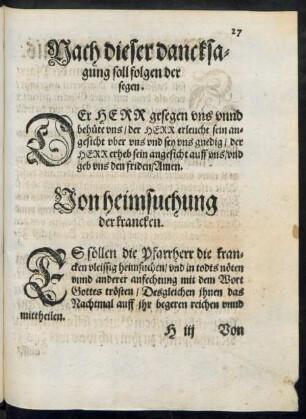 27
Nach dieser dancksa-
gung soll folgen der
segen.
DEr HERR gesegen vns vnnd
behüte vns / der HERR erleucht sein an-
gesicht vber vns vnd sey vns gnedig / der
HERR erheb sein angesicht auff vns / vnd
geb vns den friden / Amen.
Von heimsuchung
der krancken.
ES söllen die Pfarrherr die kran-
cken vleissig heimsuchen / vnd in todts nöten
vnnd anderer anfechtung mit dem Wort
Gottes trösten / Desgleichen jhnen das
Nachtmal auff jhr begeren reichen vnnd
mittheilen.
H iij Von